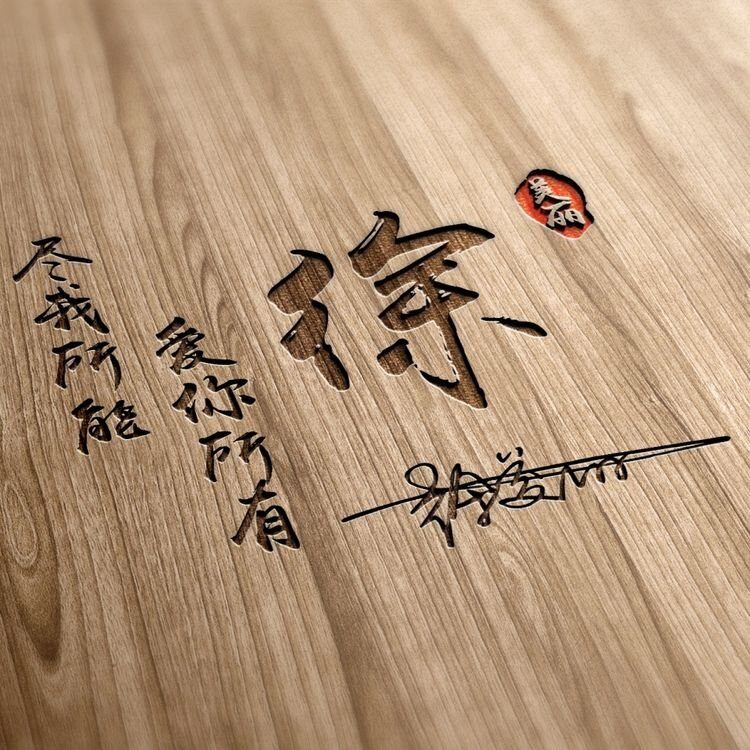 美丽
徐
爱你所有
尽我所能